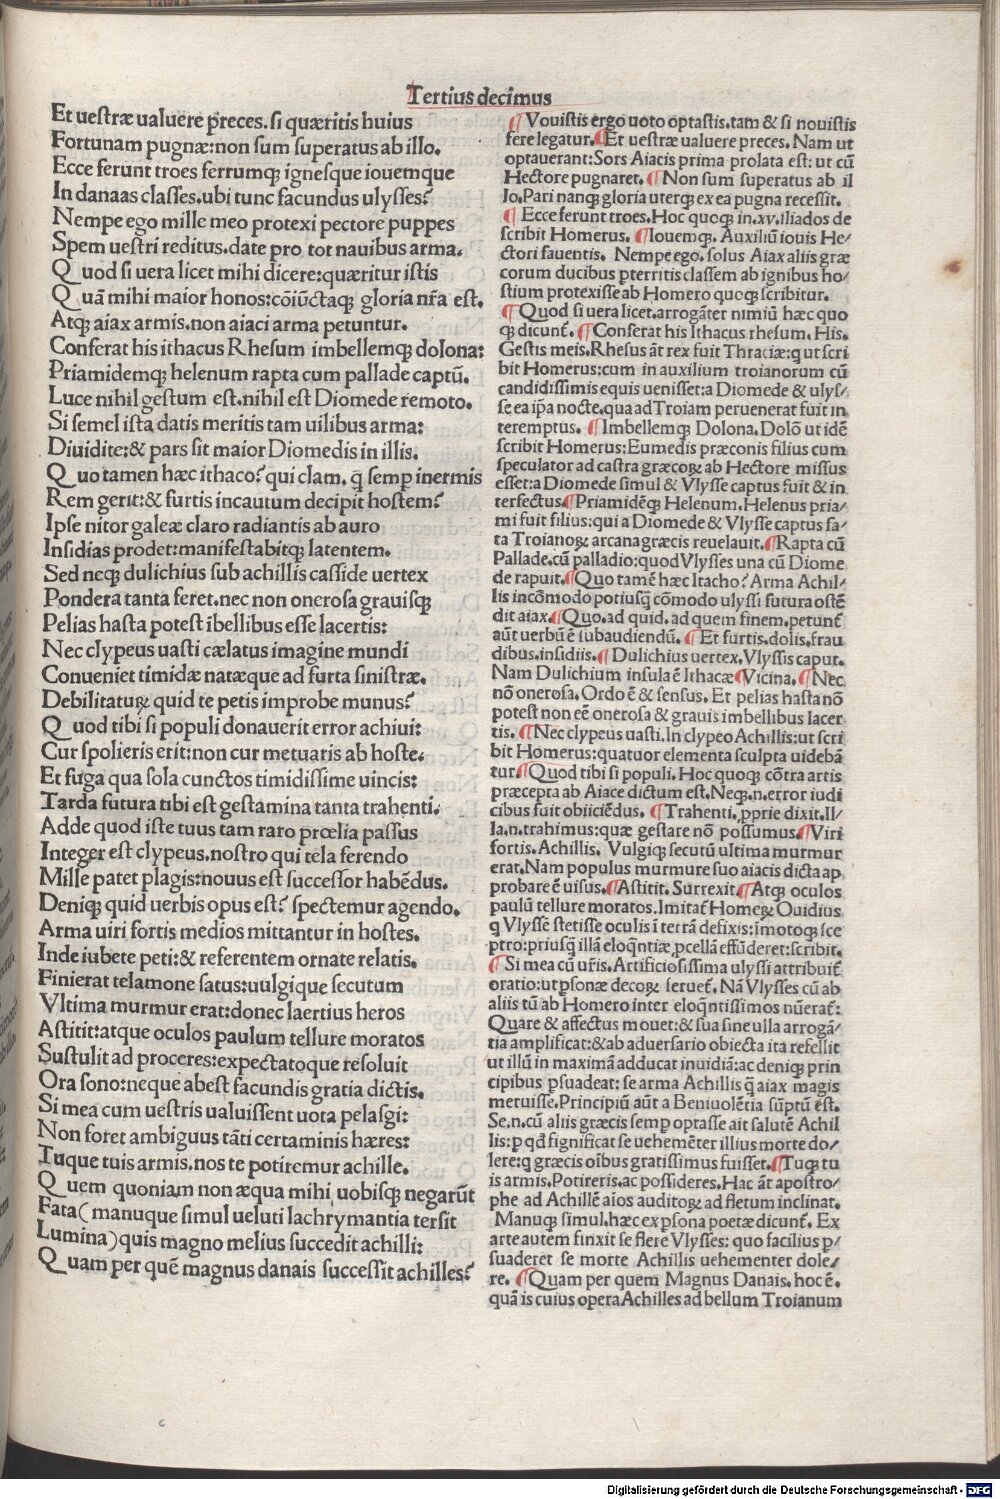 Tertius decimus
Et uestræ ualuere preces. si quæritis huius
Fortunam pugnæ: non sum superatus ab illo.
Ecce ferunt troes ferrumqꝫ ignesque iouemque
In danaas classes. ubi tunc facundus ulysses?
Nempe ego mille meo protexi pectore puppes
Spem uestri reditus. date pro tot nauibus arma.
Quod si uera licet mihi dicere: quæritur istis
Quā mihi maior honos: cōiūctaqꝫ gloria nr̄a est.
Atqꝫ aiax armis. non aiaci arma petuntur.
Conferat his ithacus Rhesum imbellemqꝫ dolona:
Priamidemqꝫ helenum rapta cum pallade captū.
Luce nihil gestum est. nihil est Diomede remoto.
Si semel ista datis meritis tam uilibus arma:
Diuidite: & pars sit maior Diomedis in illis.
Quo tamen hæc ithaco? qui clam. q̄ semp inermis
Rem gerit: & furtis incautum decipit hostem?
Ipse nitor galeæ claro radiantis ab auro
Insidias prodet: manifestabitqꝫ latentem.
Sed neqꝫ dulichius sub achillis casside uertex
Pondera tanta feret. nec non onerosa grauisqꝫ
Pelias hasta potest ibellibus esse lacertis:
Nec clypeus uasti cælatus imagine mundi
Conueniet timidæ natæque ad furta sinistræ.
Debilitaturꝫ quid te petis improbe munus?
Quod tibi si populi donauerit error achiui:
Cur spolieris erit: non cur metuaris ab hoste.
Et fuga qua sola cunctos timidissime uincis:
Tarda futura tibi est gestamina tanta trahenti.
Adde quod iste tuus tam raro prœlia passus
Integer est clypeus. nostro qui tela ferendo
Mille patet plagis: nouus est successor habēdus.
Deniqꝫ quid uerbis opus est? spectemur agendo.
Arma uiri fortis medios mittantur in hostes.
Inde iubete peti: & referentem ornate relatis.
Finierat telamone satus: uulgique secutum
Vltima murmur erat: donec laertius heros
Astitit: atque oculos paulum tellure moratos
Sustulit ad proceres: expectatoque resoluit
Ora sono: neque abest facundis gratia dictis.
Si mea cum uestris ualuissent uota pelasgi:
Non foret ambiguus tāti certaminis hæres:
Tuque tuis armis. nos te potiremur achille.
Quem quoniam non æqua mihi uobisqꝫ negarūt
Fata (manuque simul ueluti lachrymantia tersit
Lumina) quis magno melius succedit achilli:
Quam per quē magnus danais successit achilles?
¶ Vouistis ergo uoto optastis. tam & si nouistis
fere legatur. ¶ Et uestræ ualuere preces. Nam ut
optauerant: Sors Aiacis prima prolata est: ut cū
Hectore pugnaret. ¶ Non sum superatus ab il
lo. Pari nanqꝫ gloria uterqꝫ ex ea pugna recessit.
¶ Ecce ferunt troes. Hoc quoqꝫ in. xv. iliados de
scribit Homerus. ¶ Iouemqꝫ. Auxiliū iouis He/
ctori fauentis. Nempe ego. solus Aiax aliis græ
corum ducibus pterritis classem ab ignibus ho/
stium protexisse ab Homero quoqꝫ scribitur.
¶ Quod si uera licet. arrogāter nimiū hæc quo
qꝫ dicunt̄. ¶ Conferat his Ithacus rhesum. His.
Gestis meis. Rhesus āt rex fuit Thraciæ: q ut scri
bit Homerus: cum in auxilium troianorum cū
candidissimis equis uenisset: a Diomede & ulys/
se ea ip̄a nocte. qua ad Troiam peruenerat fuit in
teremptus. ¶ Imbellemqꝫ Dolona. Dolō ut idē
scribit Homerus: Eumedis præconis filius cum
speculator ad castra græcoꝝ ab Hectore missus
esset: a Diomede simul & Vlysse captus fuit & in
terfectus. ¶ Priamidēqꝫ Helenum. Helenus pria/
mi fuit filius: qui a Diomede & Vlysse captus fa/
ta Troianoꝝ arcana græcis reuelauit. ¶ Rapta cū
Pallade. cū palladio: quod Vlysses una cū Diome
de rapuit. ¶ Quo tamē hæc Itacho? Arma Achil/
lis incōmodo potiusq̄ cōmodo ulyssi futura ostē
dit aiax. ¶ Quo. ad quid. ad quem finem. petunt̄
aūt uerbū ē subaudiendū. ¶ Et furtis. dolis. frau
dibus. insidiis. ¶ Dulichius uertex. Vlyssis caput.
Nam Dulichium insula ē Ithacæ ¶ Vicina. ¶ Nec
nō onerosa. Ordo ē & sensus. Et pelias hasta nō
potest non eē onerosa & grauis imbellibus lacer
tis. ¶ Nec clypeus uasti. In clypeo Achillis: ut scri
bit Homerus: quatuor elementa sculpta uidebā
tur. ¶ Quod tibi si populi. Hoc quoqꝫ cōtra artis
præcepta ab Aiace dictum est. Neqꝫ. n. error iudi
cibus fuit obiiciēdus. ¶ Trahenti. pprie dixit. Il/
la. n. trahimus: quæ gestare nō possumus. ¶ Viri
fortis. Achillis. Vulgiqꝫ secutū ultima murmur
erat. Nam populus murmure suo aiacis dicta ap
probare ē uisus. ¶ Astitit. Surrexit. ¶ Atqꝫ oculos
paulū tellure moratos. Imitat̄ Homeꝝ Ouidius
q Vlyssē stetisse oculis ī terrā defixis: īmotoqꝫ sce
ptro: priusq̄ illā eloq̄ntiæ pcellā effūderet: scribit.
¶ Si mea cū ur̄is. Artificiosissima ulyssi attribuit̄
oratio: ut psonæ decoꝝ seruet̄. Nā Vlysses cū ab
aliis tū ab Homero inter eloq̄ntissimos nūerat̄:
Quare & affectus mouet: & sua sine ulla arrogā/
tia amplificat: & ab aduersario obiecta ita refellit
ut illū in maximā adducat inuidiā: ac deniqꝫ prin
cipibus psuadeat: se arma Achillis q̄ aiax magis
meruisse. Principiū aūt a Beniuolētia sūptū est.
Se. n. cū aliis græcis semp optasse ait salutē Achil
lis: p qd̄ significat se uehemēter illius morte do/
lere: q græcis oībus gratissimus fuisset. ¶ Tuqꝫ tu
is armis. Potireris. ac possideres. Hac āt apostro/
phe ad Achillē aīos auditoꝝ ad fletum inclinat.
Manuqꝫ simul. hæc ex psona poetæ dicunt̄. Ex
arte autem finxit se flere Vlysses: quo facilius p/
suaderet se morte Achillis uehementer dole/
re. ¶ Quam per quem Magnus Danais. hoc ē.
quā is cuius opera Achilles ad bellum Troianum
Digitalisierung gefördert durch die Deutsche Forschungsgemeinschaft - DFG